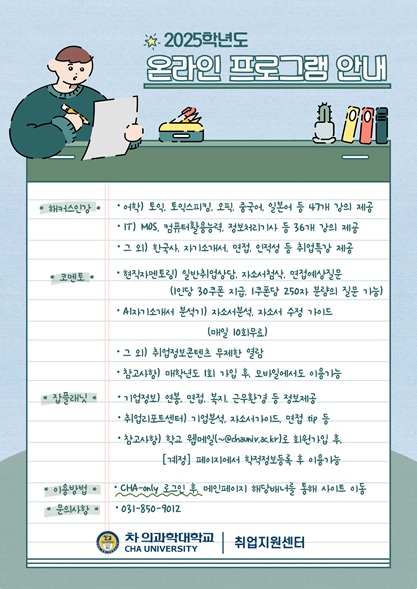 2025학년도
온라인 프로그램 안내
* 해커스인강 *
• 어학) 토익, 토익스피킹, 오픽, 중국어, 일본어 등 47개 강의 제공
• IT) MOS, 컴퓨터활용능력, 정보처리기사 등 36개 강의 제공
• 그 외) 한국사, 자기소개서, 면접, 인적성 등 취업특강 제공
* 코멘토 *
• 현직자멘토링) 일반취업상담, 자소서첨삭, 면접예상질문
(1인당 30쿠폰 지급, 1쿠폰당 250자 분량의 질문 가능)
• AI자기소개서 분석기) 자소서분석, 자소서 수정 가이드
(매일 10회무료)
• 그 외) 취업정보콘텐츠 무제한 열람
• 참고사항) 매학년도 1회 가입 후, 모바일에서도 이용가능
* 잡플래닛 *
• 기업정보) 연봉, 면접, 복지, 근무환경 등 정보제공
• 취업리포트센터) 기업분석, 자소서가이드, 면접 tip 등
• 참고사항) 학교 웹메일(~@chauniv.ac.kr)로 회원가입 후,
[계정] 페이지에서 학적정보등록 후 이용가능
* 이용방법 *
• CHA-only 로그인 후, 메인페이지 해당배너를 통해 사이트 이동
* 문의사항 *
• 031-850-9012
차 의과학대학교
CHA UNIVERSITY
취업지원센터